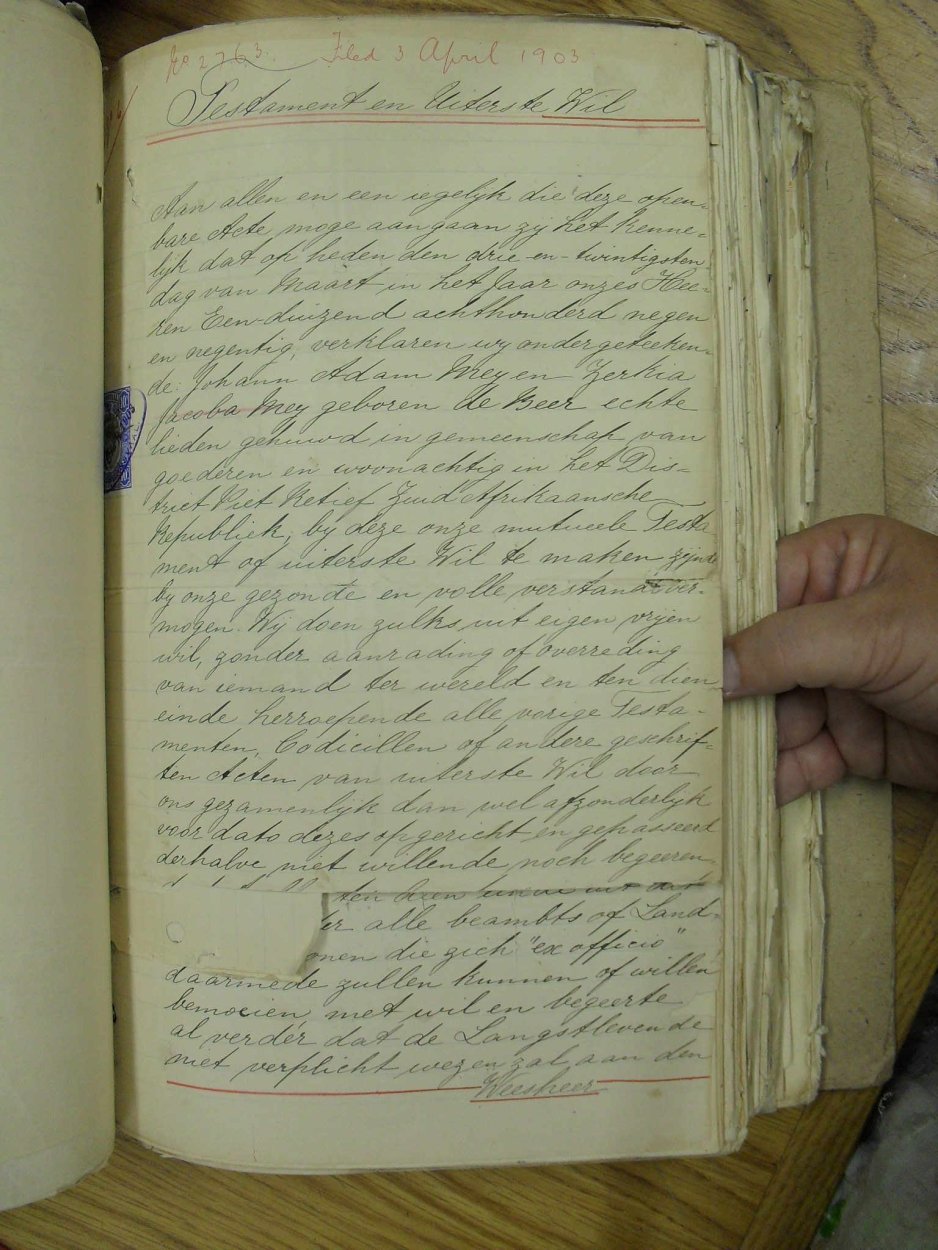 No 2763. Filed 3 April 1903
Testament en Uiterste Wil
Aan allen en een iegelijk die deze open-
bare Acte moge aangaan zy het kenne-
lijk dat op heden den drie-en-twintigsten
dag van Maart in het Jaar onzes Hee-
ren Een-duizend achthonderd negen
en negentig, verklaren wy ondergeteeken-
de: Johann Adam Mey en Zerkia
Jacoba Mey geboren de Beer echte
lieden gehuwd in gemeenschap van
goederen en woonachtig in het Dis-
trict Piet Retief Zuid Afrikaansche
Republiek, by deze onze mutueele Testa
ment of uiterste Wil te maken zijnde
by onze gezonde en volle verstandver-
mogen. Wij doen zulks uit eigen vrijen
wil, zonder aanrading of overreding
van iemand ter wereld en ten dien
einde herroepende alle vorige Testa-
menten, Codicillen of andere geschrif-
ten Acten van uiterste Wil door
ons gezamenlijk dan wel afzonderlyk
voor dato dezes opgericht en gepasseerd
derhalve niet willende noch begeeren-
er alle beambts of Land-
onen die zich "ex officio"
daarmede zullen kunnen of willen
bemoeien, met wil en begeerte
al verder dat de Langstlevende
niet verplicht wezen zal aan den
Weesheer